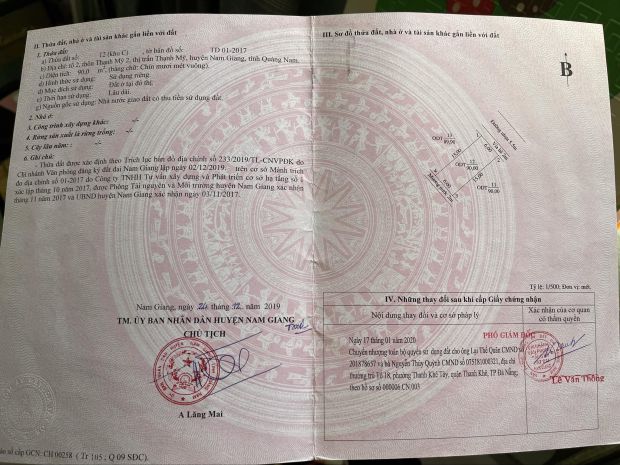 II. Thửa đất, nhà ở và tài sản khác gắn liền với đất
1. Thửa đất:
a) Thửa đất số: 12 (khu C) , tờ bản đồ số: TĐ 01-2017
b) Địa chỉ: tổ 2, thôn Thạnh Mỹ 2, thị trấn Thạnh Mỹ, huyện Nam Giang, tỉnh Quảng Nam.
c) Diện tích: 90,0 m², (bằng chữ: Chín mươi mét vuông).
d) Hình thức sử dụng: Sử dụng riêng
đ) Mục đích sử dụng: Đất ở tại đô thị.
e) Thời hạn sử dụng: Lâu dài.
g) Nguồn gốc sử dụng: Nhà nước giao đất có thu tiền sử dụng đất.
2. Nhà ở: -/-
3. Công trình xây dựng khác: -/-
4. Rừng sản xuất là rừng trồng: -/-
5. Cây lâu năm: -/-
6. Ghi chú:
- Thửa đất được xác định theo Trích lục bản đồ địa chính số 233/2019/TL-CNVPĐK do
Chi nhánh Văn phòng đăng ký đất đai Nam Giang lập ngày 02/12/2019, trên cơ sở Mảnh trích
đo địa chính số 01-2017 do Công ty TNHH Tư vấn xây dựng và Phát triển cơ sở hạ tầng số 1
xác lập tháng 10 năm 2017, được Phòng Tài nguyên và Môi trường huyện Nam Giang xác nhận
tháng 11 năm 2017 và UBND huyện Nam Giang xác nhận ngày 03/11/2017.
Nam Giang, ngày 24 tháng 12 năm 2019
TM. ỦY BAN NHÂN DÂN HUYỆN NAM GIANG
CHỦ TỊCH
A Lăng Mai
số cấp GCN: CH 00258 ( Tr 105 ; Q 09 SĐC).
III. Sơ đồ thửa đất, nhà ở và tài sản khác gắn liền với đất
B
Đường nhựa 7,5m
ODT 13
89,90
15,00
6,00
ODT 12
90,00
15,00
6,00
ODT 11
90,00
Mương thoát
Tỷ lệ: 1/500; Đơn vị: mét.
IV. Những thay đổi sau khi cấp Giấy chứng nhận
Nội dung thay đổi và cơ sở pháp lý
Xác nhận của cơ quan
có thẩm quyền
Ngày 17 tháng 01 năm 2020
Chuyển nhượng toàn bộ quyền sử dụng đất cho ông Lại Thế Quân CMND số
201878657 và bà Nguyễn Thụy Quỳnh CMND số 075181000321, địa chỉ
thường trú Tổ 18, phường Thanh Khê Tây, quận Thanh Khê, TP Đà Nẵng,
theo hồ sơ số 000006.CN.003
PHÓ GIÁM ĐỐC
Lê Văn Thông